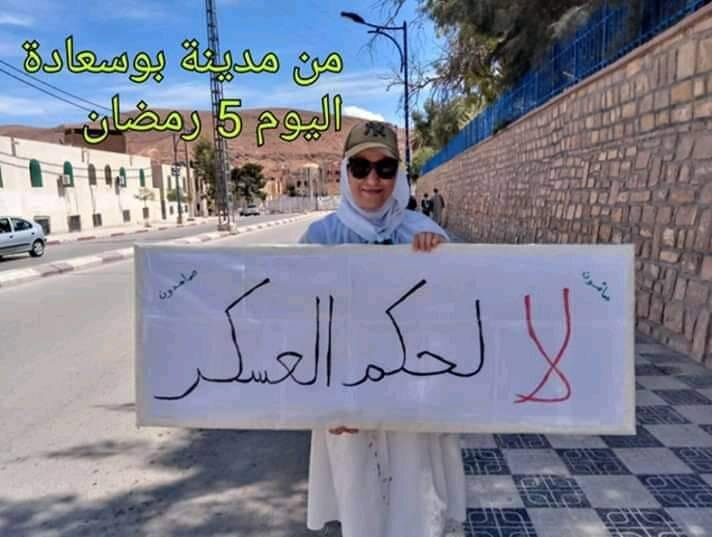 من مدينة بوسعادة
اليوم 5 رمضان
صائمون
صامدون
لا لحكم العسكر